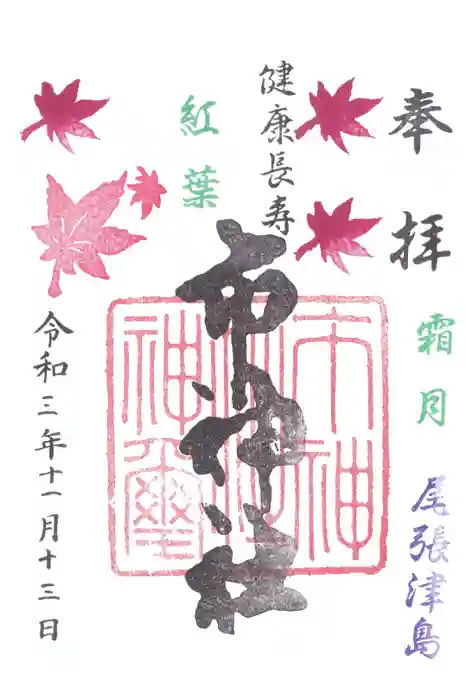 奉拝
霜月
尾張津島
健康長寿
市神社
紅葉
令和三年十一月十三日